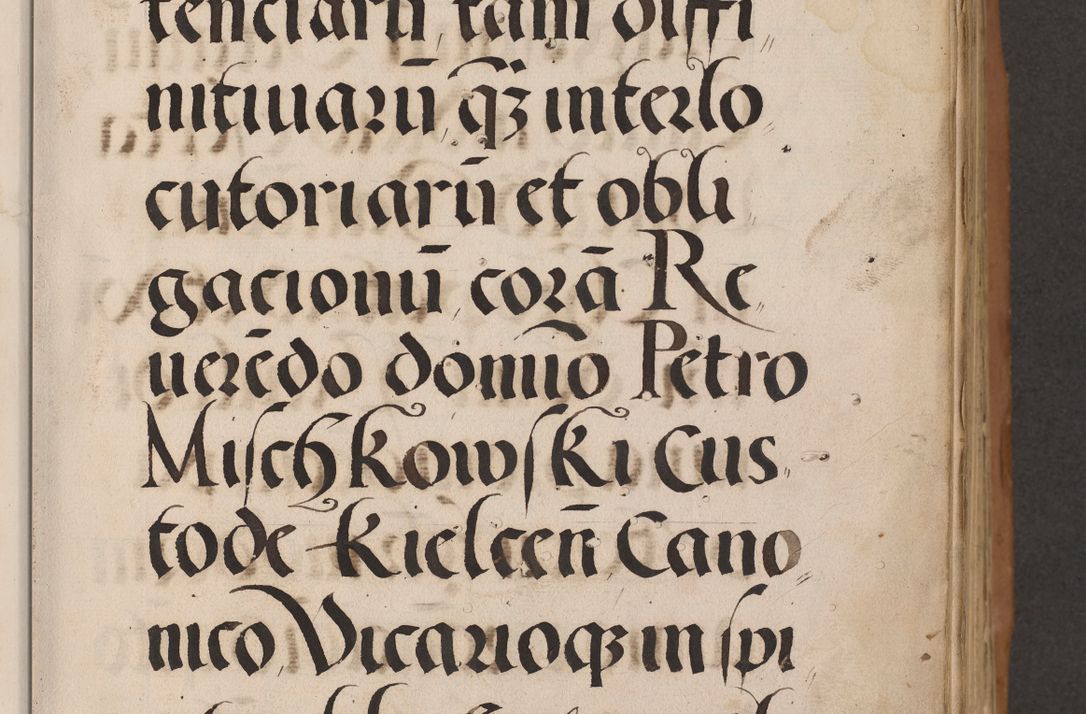 tenciarū tam diffi
nitiuarū qȝ interlo
cutoriarū et obli
gacionū corā Re
uerēdo domīo Petro
Miſchkowſki Cus
tode Kielceñ Cano
nico Vicarioqȝ in ſpi